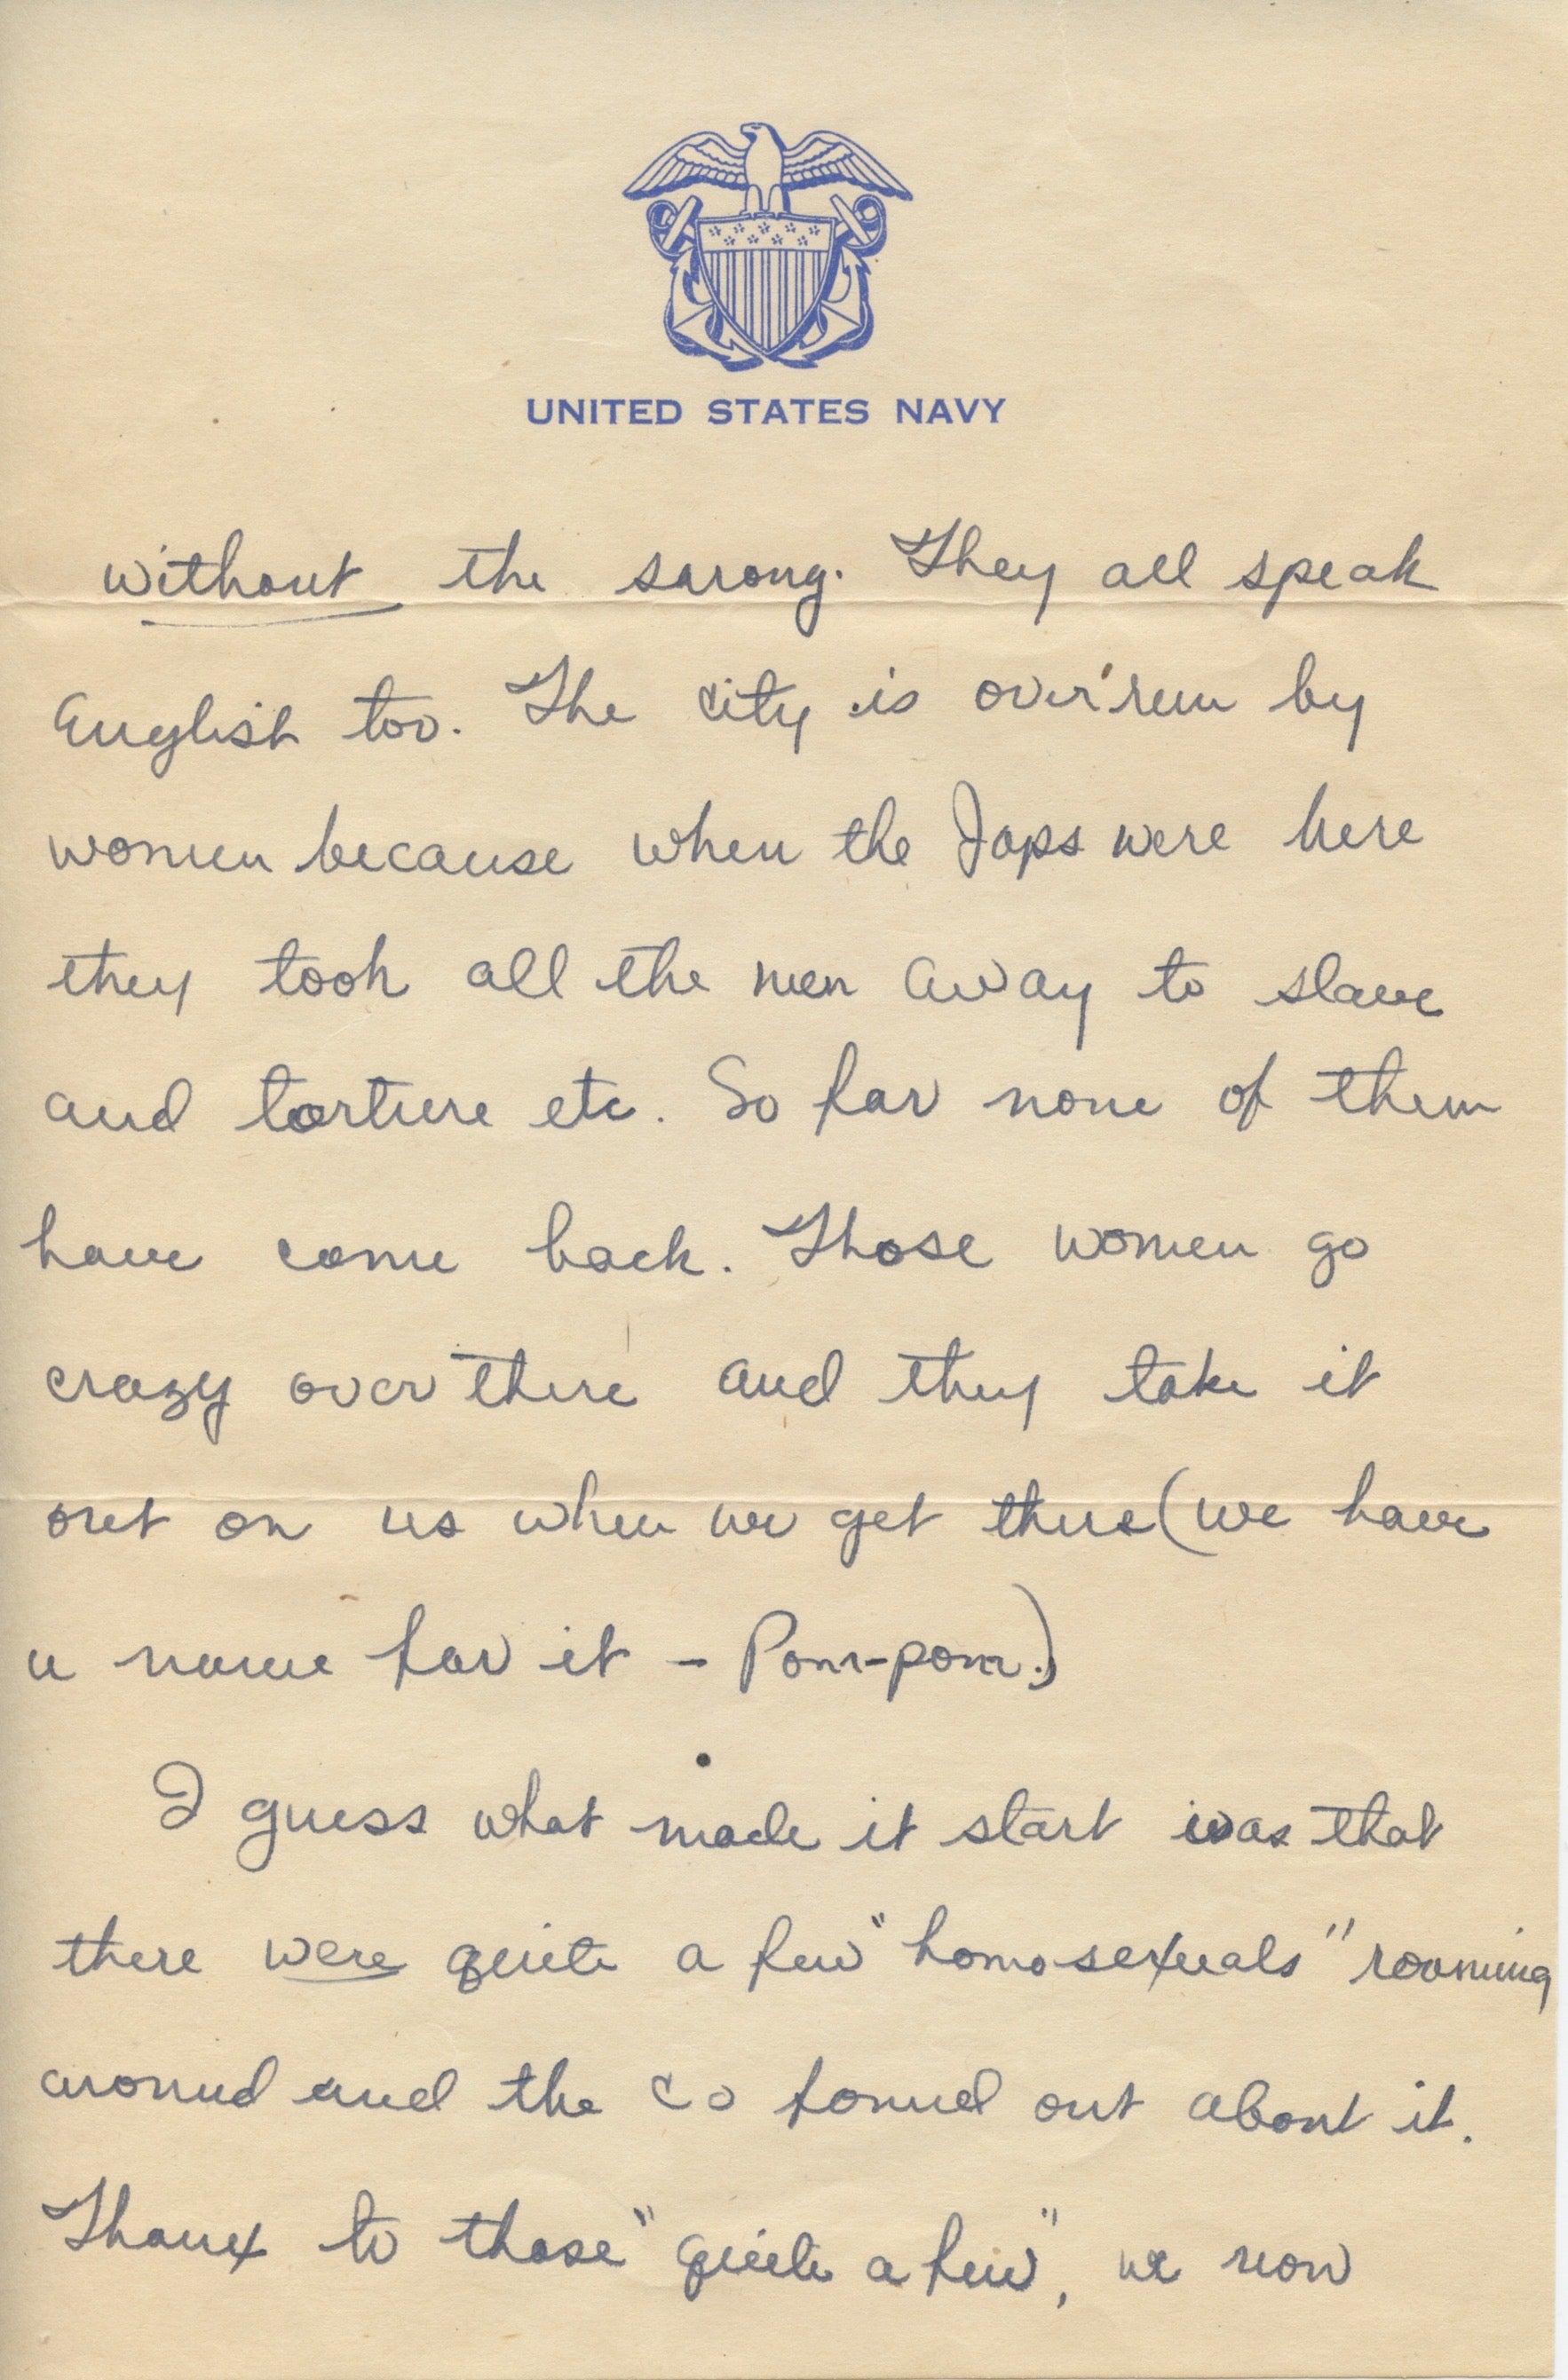 UNITED STATES NAVY
without the sarong. They all speak
English too. The city is over'run by
women because when the Japs were here
they took all the men away to slave
and torture etc. So far none of them
have come back. Those women go
crazy over there and they take it
out on us when we get there (we have
a name for it - Pom-pom.)
I guess what made it start was that
there were quite a few "homosexuals" roaming
around and the CO found out about it.
Thanx to those "quite a few", we now